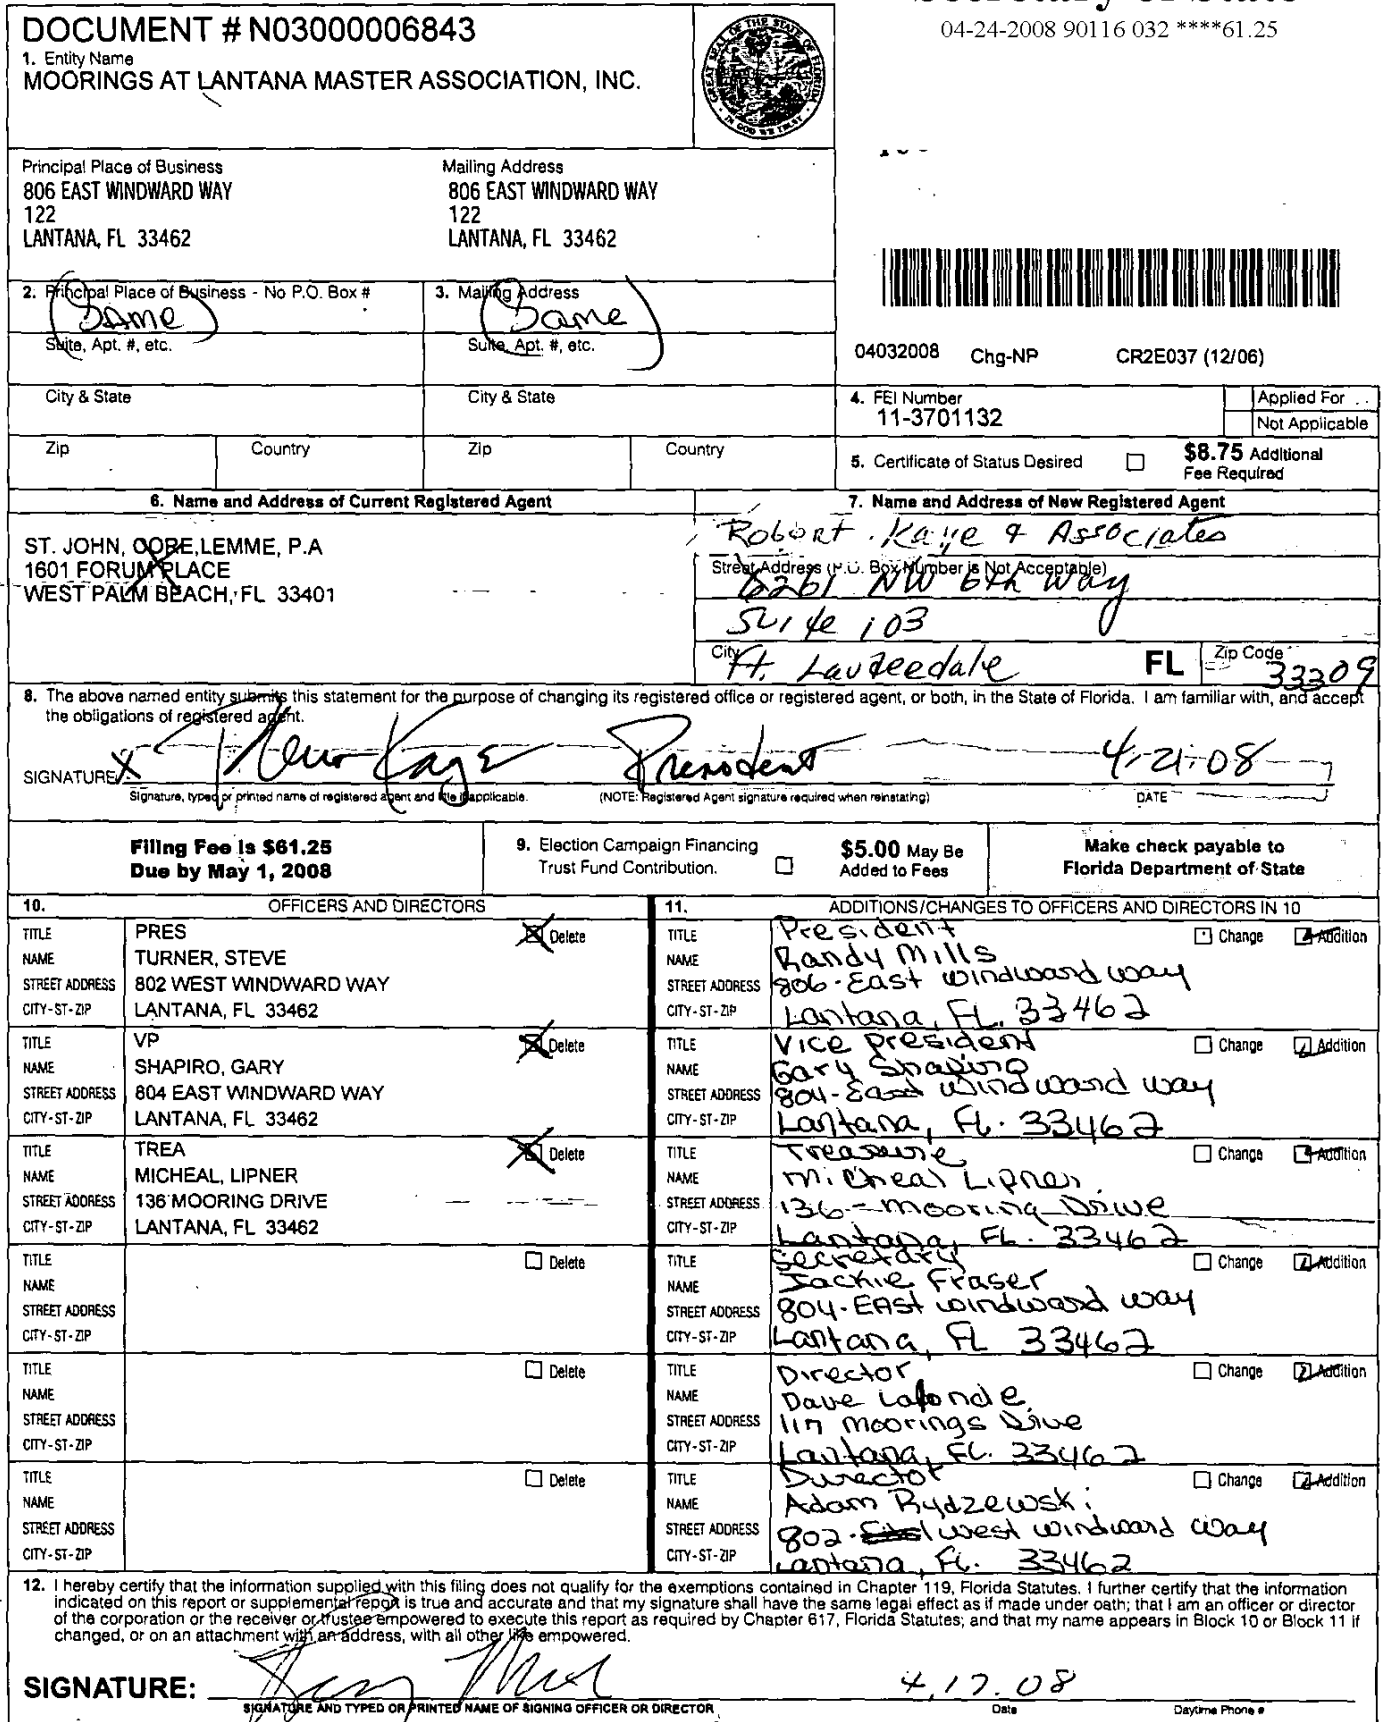 DOCUMENT # N03000006843
04-24-2008 90116 032 ****61.25
1. Entity Name
MOORINGS AT LANTANA MASTER ASSOCIATION, INC.
GREAT SEAL OF THE STATE OF FLORIDA
IN GOD WE TRUST
Principal Place of Business
806 EAST WINDWARD WAY
122
LANTANA, FL 33462
Mailing Address
806 EAST WINDWARD WAY
122
LANTANA, FL 33462
2. Principal Place of Business - No P.O. Box #
SAME
Suite, Apt. #, etc.
City & State
Zip Country
3. Mailing Address
Same
Suite, Apt. #, etc.
City & State
Zip Country
04032008 Chg-NP CR2E037 (12/06)
4. FEI Number
11-3701132
Applied For
Not Applicable
5. Certificate of Status Desired
$8.75 Additional
Fee Required
6. Name and Address of Current Registered Agent
ST. JOHN, CORE,LEMME, P.A
1601 FORUM PLACE
WEST PALM BEACH, FL 33401
7. Name and Address of New Registered Agent
Robert Kaye & Associates
Street Address (P.O. Box Number is Not Acceptable)
6261 NW 6th Way
Suite 103
City
Ft. Lauderdale FL Zip Code 33309
8. The above named entity submits this statement for the purpose of changing its registered office or registered agent, or both, in the State of Florida. I am familiar with, and accept
the obligations of registered agent.
SIGNATURE X Kaye President 4-21-08
Signature, typed or printed name of registered agent and title if applicable. (NOTE: Registered Agent signature required when reinstating) DATE
Filing Fee is $61.25
Due by May 1, 2008
9. Election Campaign Financing
Trust Fund Contribution.
$5.00 May Be
Added to Fees
Make check payable to
Florida Department of State
10. OFFICERS AND DIRECTORS
TITLE PRES Delete
NAME TURNER, STEVE
STREET ADDRESS 802 WEST WINDWARD WAY
CITY-ST-ZIP LANTANA, FL 33462
TITLE VP Delete
NAME SHAPIRO, GARY
STREET ADDRESS 804 EAST WINDWARD WAY
CITY-ST-ZIP LANTANA, FL 33462
TITLE TREA Delete
NAME MICHEAL, LIPNER
STREET ADDRESS 136 MOORING DRIVE
CITY-ST-ZIP LANTANA, FL 33462
TITLE Delete
NAME
STREET ADDRESS
CITY-ST-ZIP
TITLE Delete
NAME
STREET ADDRESS
CITY-ST-ZIP
TITLE Delete
NAME
STREET ADDRESS
CITY-ST-ZIP
11. ADDITIONS/CHANGES TO OFFICERS AND DIRECTORS IN 10
TITLE President Change Addition
NAME Randy Mills
STREET ADDRESS 806-East windward way
CITY-ST-ZIP Lantana, FL. 33462
TITLE Vice president Change Addition
NAME Gary Shapiro
STREET ADDRESS 804-East windward way
CITY-ST-ZIP Lantana, FL. 33462
TITLE Treasurie Change Addition
NAME Micheal Lipner
STREET ADDRESS 136-mooring Drive
CITY-ST-ZIP Lantana, FL. 33462
TITLE Secretary Change Addition
NAME Jackie Fraser
STREET ADDRESS 804-EAst windward way
CITY-ST-ZIP Lantana, FL 33462
TITLE Director Change Addition
NAME Dave Lafonde
STREET ADDRESS 117 moorings Drive
CITY-ST-ZIP Lantana, FL. 33462
TITLE Director Change Addition
NAME Adam Rydzewski
STREET ADDRESS 802-West windward way
CITY-ST-ZIP Lantana, FL. 33462
12. I hereby certify that the information supplied with this filing does not qualify for the exemptions contained in Chapter 119, Florida Statutes. I further certify that the information
indicated on this report or supplemental report is true and accurate and that my signature shall have the same legal effect as if made under oath; that I am an officer or director
of the corporation or the receiver or trustee empowered to execute this report as required by Chapter 617, Florida Statutes; and that my name appears in Block 10 or Block 11 if
changed, or on an attachment with an address, with all other like empowered.
SIGNATURE: 4.17.08
SIGNATURE AND TYPED OR PRINTED NAME OF SIGNING OFFICER OR DIRECTOR Date Daytime Phone #